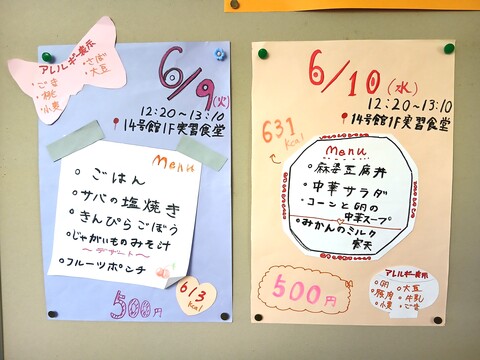 アレルギー表示
・ごま ・さば
・桃 ・大豆
・小麦
6/9(火)
12:20~13:10
14号館1F実習食堂
Menu
・ごはん
・サバの塩焼き
・きんぴらごぼう
・じゃがいものみそ汁
～デザート～
・フルーツポンチ
500円
613
kcal
6/10(水)
12:20~13:10
14号館1F実習食堂
631
kcal
Menu
・麻婆豆腐丼
・中華サラダ
・コーンと卵の
中華スープ
・みかんのミルク
寒天
500円
アレルギー表示
・卵 ・大豆
・豚肉 ・牛乳
・小麦 ・ごま